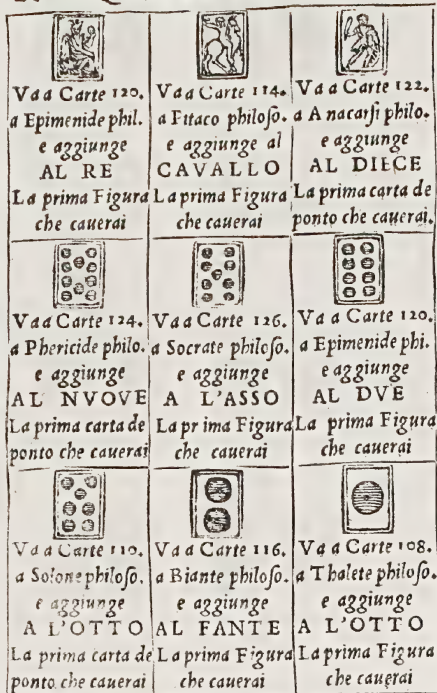 Vda Carte 120.
a Epimenide phil.
e aggiunge
AL RE
La prima Figura
che cauerai
Vda Carte 114.
a Pitaco philoſo.
e aggiunge al
CAVALLO
La prima Figura
che cauerai
Vda Carte 122.
a Anacarſi philo.
e aggiunge
AL DIECE
La prima carta de
ponto che cauerai.
Vda Carte 124.
a Phericide philo.
e aggiunge
AL NVOVE
La prima carta de
ponto che cauerai
Vda Carte 126.
a Socrate philoſo.
e aggiunge
A L'ASSO
La prima Figura
che cauerai
Vd a Carte 120.
a Epimenide phi.
e aggiunge
AL DVE
La prima Figura
che cauerai
Vda Carte 110.
a Solone philoſo.
e aggiunge
A L'OTTO
La prima carta de
ponto che cauerai
Vda Carte 116.
a Biante philoſo.
e aggiunge
AL FANTE
La prima Figura
che cauerai
Vd a Carte 108.
a Thalete philoſo.
e aggiunge
A L'OTTO
La prima Figura
che cauerai